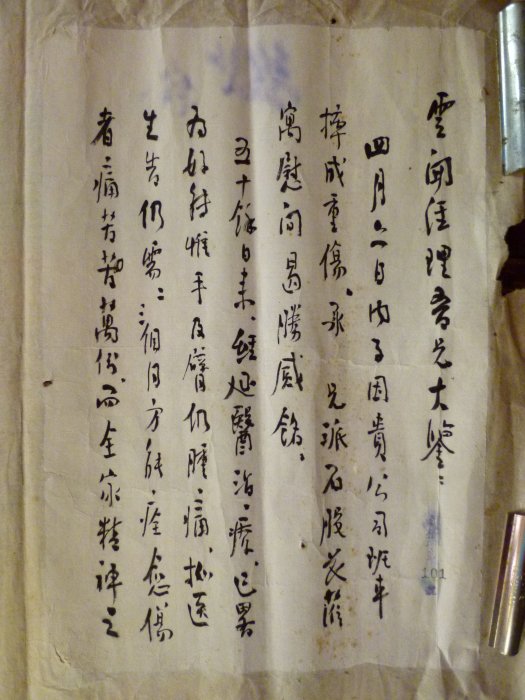 雲開經理吾兄大鑒：
四月六日內子因貴公司班車
摔成重傷。承 兄派石股長蒞
寓慰問曷勝感銘。
五十餘日來、經延醫治療、已略
為好轉惟手及臂仍腫痛、據医
生告仍需二三個月方能痊愈傷
者痛苦萬份、而全家精神之
101